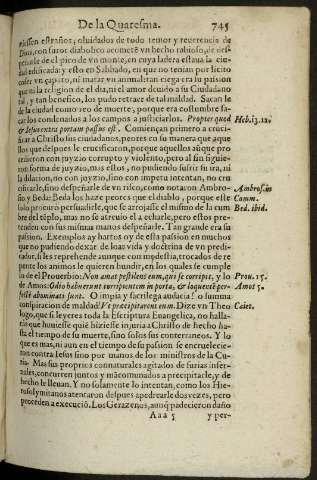 De la Quaresma. 745
niessen estraños, oluidados de todo temor y reuerencia de
Dios, con furor diabolico acometē vn hecho rabioso, de des-
peñarle de el pico de vn monte, en cuya ladera estaua la ciu-
dad edificada: y esto en Sabbado, en que no tenian por licito
coger vn caparro, ni matar vn animal: tan ciega era su passion
que ni la religion de el dia, ni el amor deuido a su Ciudadano
tal, y tan benefico, los pudo retraer de tal maldad. Sacan le
de la ciudad como reo de muerte, porque era costumbre sa-
car los condenados a los campos a justiciarlos. Propter quod
& Iesus extra portam passus est. Comiençan primero a cruci-
ficar a Christo sus ciudadanos, peores en su manera que aque
llos que despues le crucificaron, porque aquellos aūque pro-
cedieron con juyzio corrupto y violento, pero al fin siguie-
ron forma de juyzio, mas estos, no pudiendo sufrir su ira, ni
la dilacion, no con juyzio, sino con impetu intentan, no cru
cificarle, sino despeñarle de vn risco, como notaron Ambro-
sio y Beda: Beda los haze peores que el diablo, porque este
solo procurò persuadirle, que se arrojasse el mismo de la cum
bre del tēplo, mas no se atreuio a echarle, pero estos pre-
tenden con sus mesmas manos despeñarle. Tan grande era su
passion. Exemplos ay hartos oy de esta passion en muchos
que no pudiendo dexar de loar vida y doctrina de vn predi-
cador, si les reprehende aunque modestamente, trocados de re
pente los animos le quieren hundir, en los quales se cumple
lo de el Prouerbio: Non amat pestilens eum, qui se corripit, y lo
de Amos: Odio habuerunt corripientem in porta, & loquentē per-
fectè abominati sunt. O impia y sacrilega audacia! o summa
conspiracion de maldad! Vt præcipitarent eum. Dize vn Theo
logo, que si leyeres toda la Escriptura Euangelica, no halla-
rás que huuiesse quiē hiziesse injuria a Christo de hecho has-
ta el tiempo de su muerte, sino solos sus conterraneos. Y lo
que es mas, ni aun en el tiempo de su passion se encruelecie-
ron contra Iesus sino por manos de los ministros de la Cu-
ria. Mas sus proprios connaturales agitados de furias infer-
nales, concurren juntos y mācomunados a precipitarle, y de
hecho le lleuan. Y no solamente lo intentan, como los Hie-
rosolymitanos atentaron despues apedrearle dos vezes, pero
proceden a execuciō. Los Gerazenos, aunq̃ padecieron daño
Aaa 5 y per-
Heb. 13. 12.
Ambros. in
Comm.
Bed. ibid.
Prou. 15.
Amos 5.
Caiet.